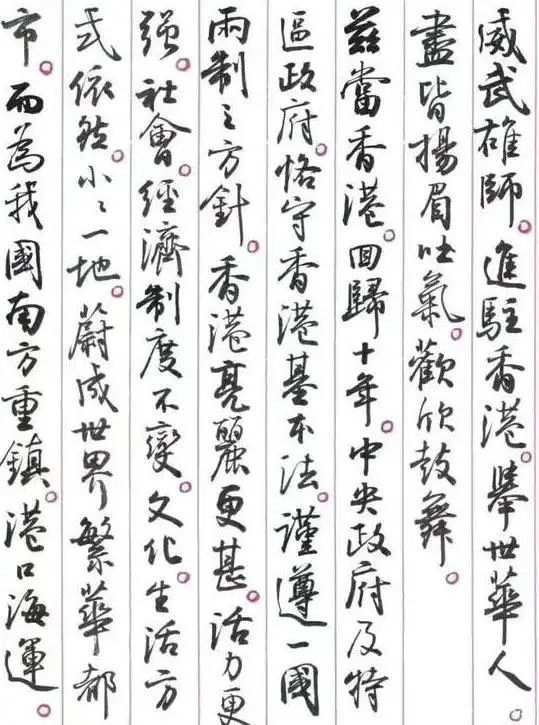 威武雄師。進駐香港。舉世華人。
盡皆揚眉吐氣。歡欣鼓舞。
茲當香港。回歸十年。中央政府及特
區政府。恪守香港基本法。謹遵一國
兩制之方針。香港亮麗更甚。活力更
强。社會。經濟制度不變。文化生活方
式依然。小々一地。蔚成世界繁華都
市。而為我國南方重鎮。港口海運。